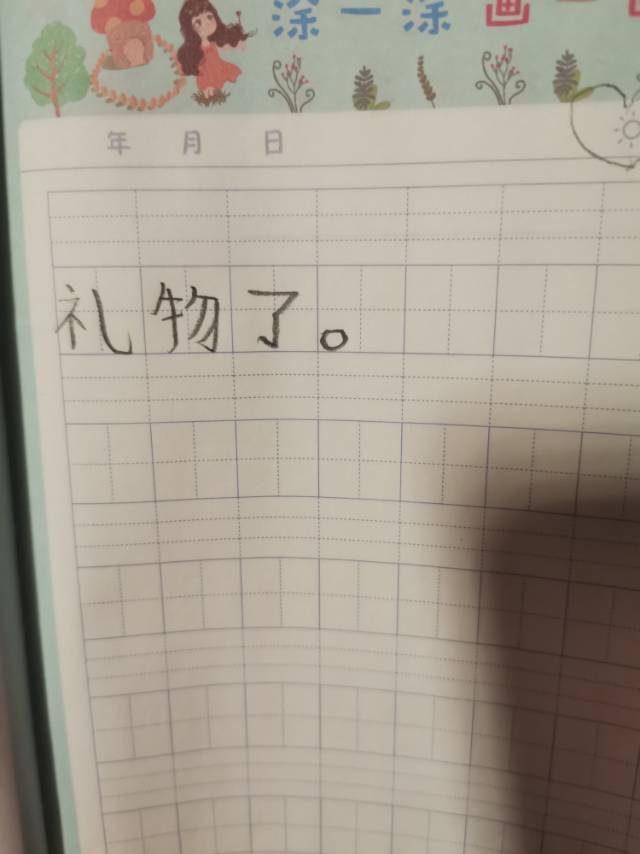 涂一涂 画一画
年 月 日
礼物了。